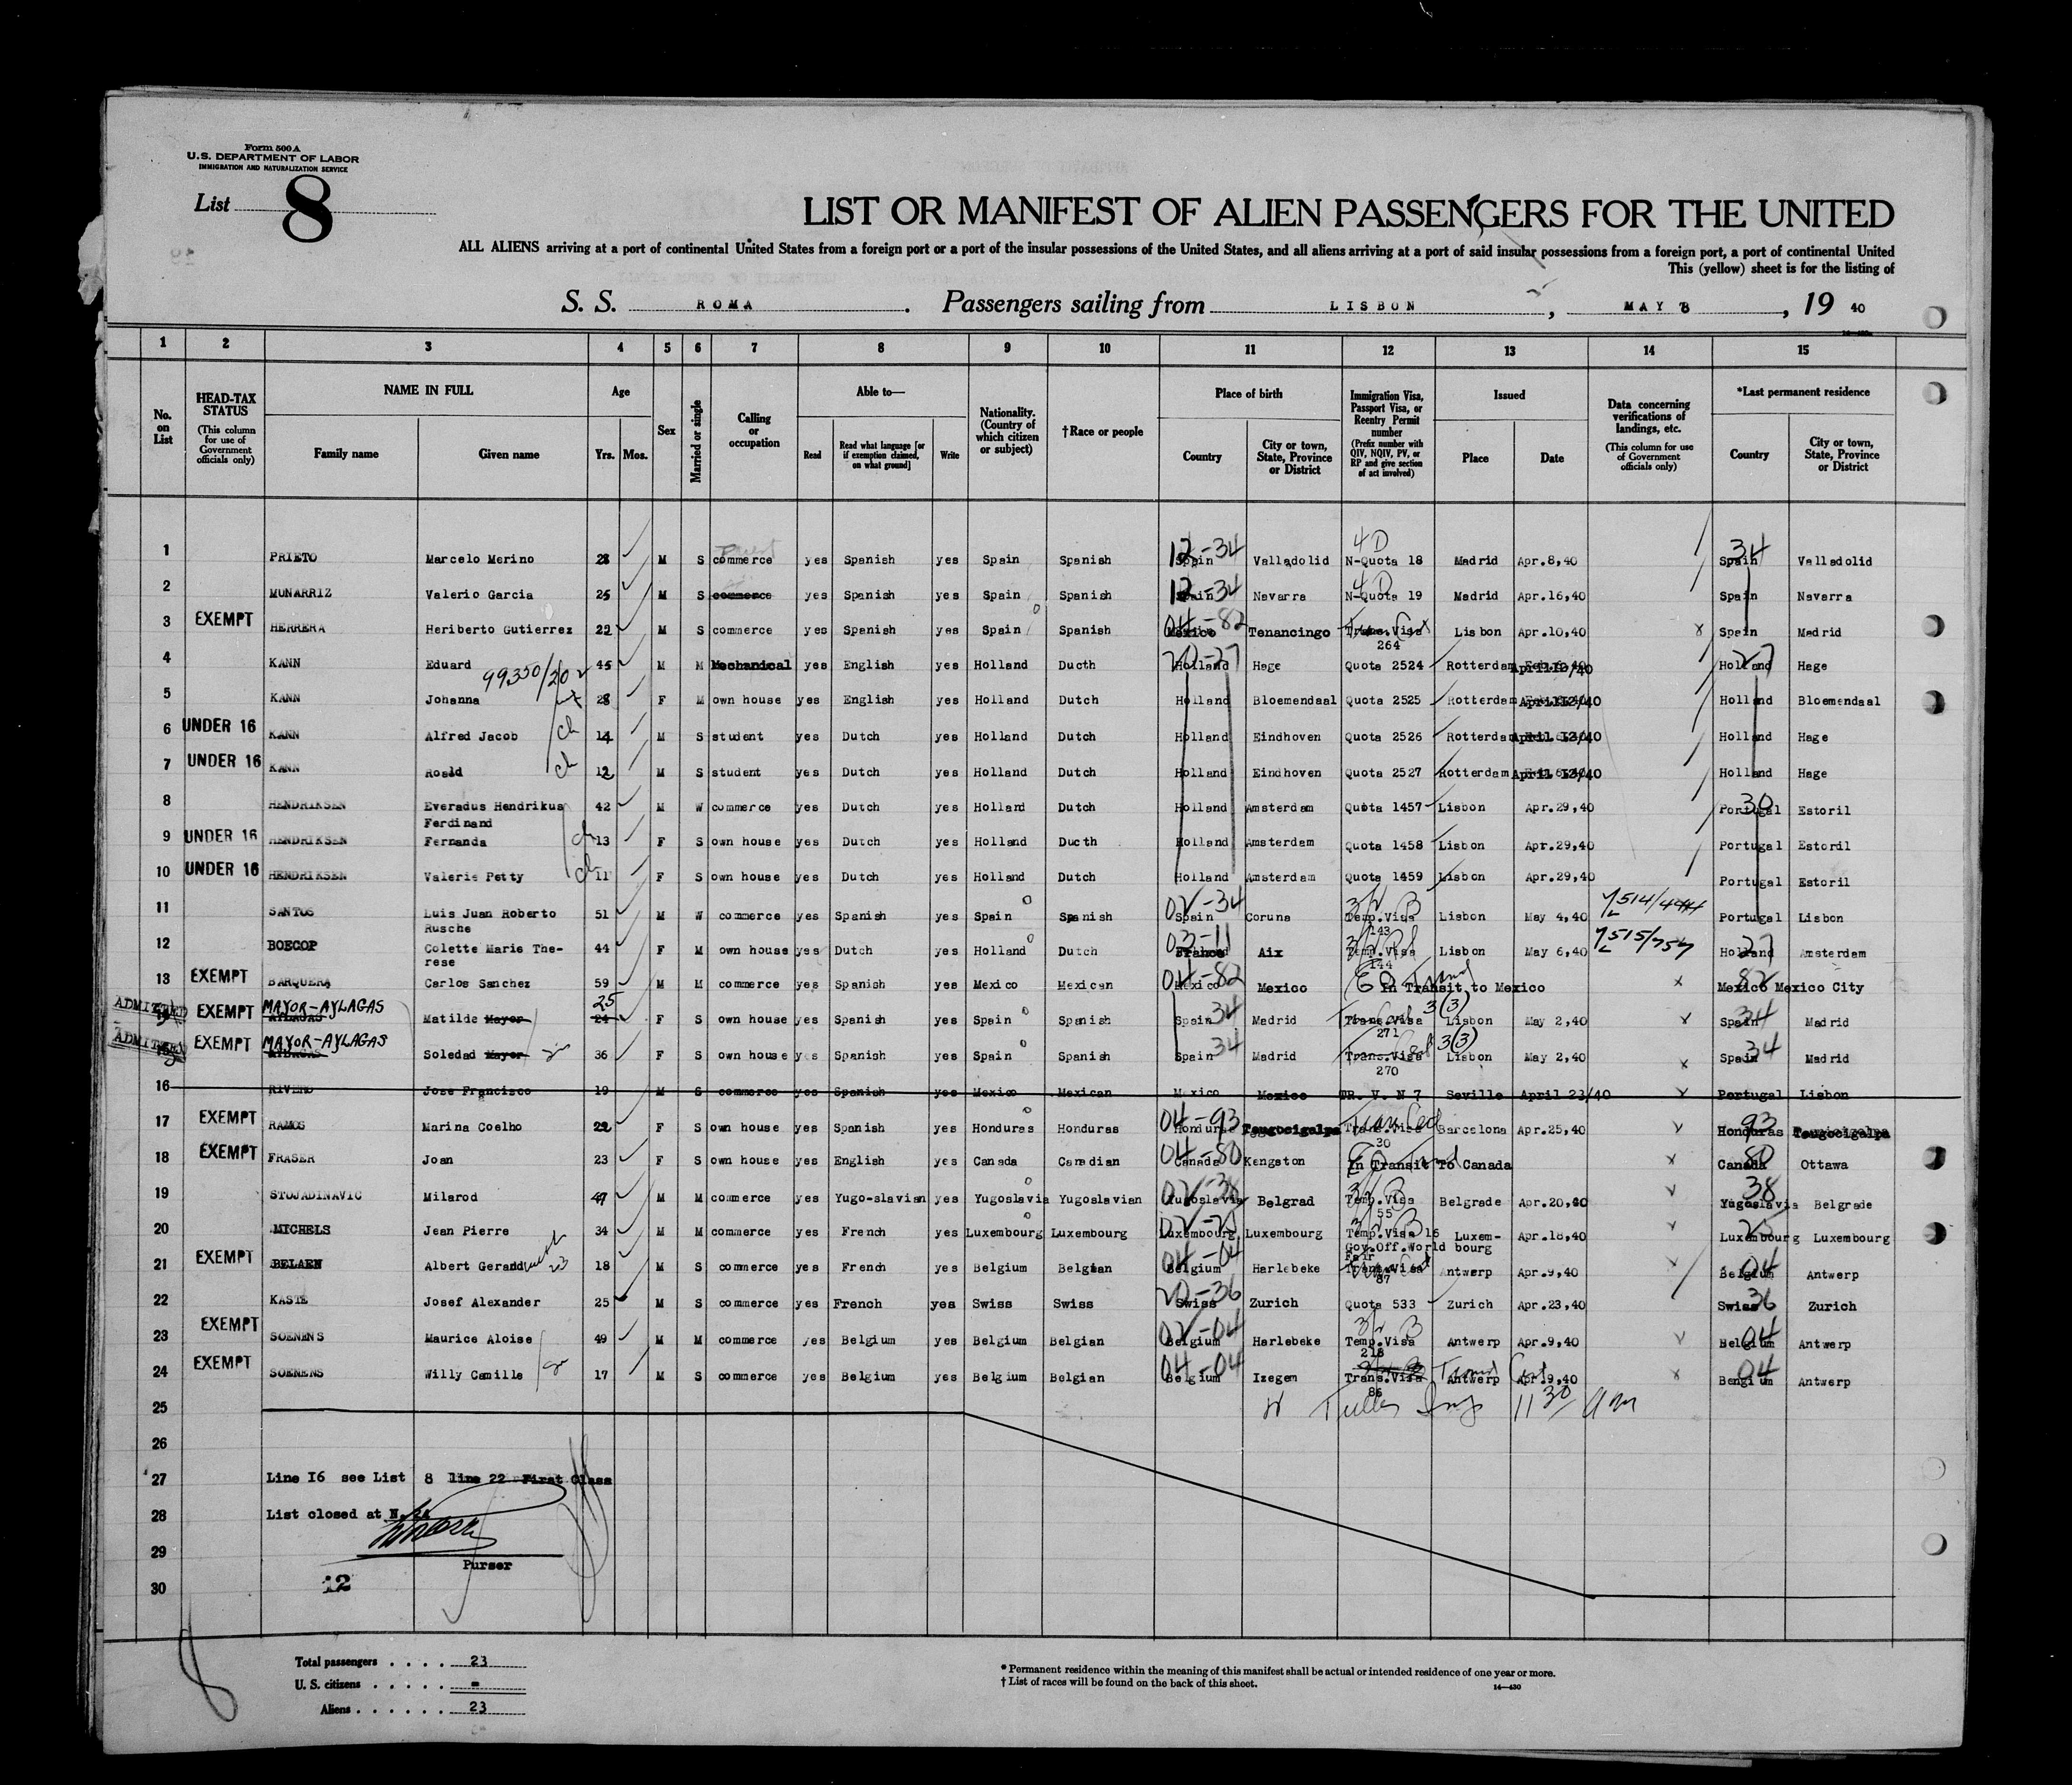 Form 500 A
U.S. DEPARTMENT OF LABOR
IMMIGRATION AND NATURALIZATION SERVICE
List 8
LIST OR MANIFEST OF ALIEN PASSENGERS FOR THE UNITED
ALL ALIENS arriving at a port of continental United States from a foreign port or a port of the insular possessions of the United States, and all aliens arriving at a port of said insular possessions from a foreign port, a port of continental United
This (yellow) sheet is for the listing of
S. S. ROMA . Passengers sailing from LISBON , MAY 8 , 19 40
1 2 3 4 5 6 7 8 9 10 11 12 13 14 15
No. on List HEAD-TAX STATUS (This column for use of Government officials only) NAME IN FULL Family name Given name Age Yrs. Mos. Sex Married or single Calling or occupation Able to— Read Read what language [or if exemption claimed, on what ground] Write Nationality. (Country of which citizen or subject) †Race or people Place of birth Country City or town, State, Province or District Immigration Visa, Passport Visa, or Reentry Permit number (Prefix number with QIV, NQIV, PV, or RP and give section of act involved) Issued Place Date Data concerning verifications of landings, etc. (This column for use of Government officials only) *Last permanent residence Country City or town, State, Province or District
12-34 4D 34
1 PRIETO Marcelo Merino 28 M S commerce yes Spanish yes Spain Spanish Spain Valladolid N-Quota 18 Madrid Apr.8,40 Spain Valladolid
12-34 4D
2 MUNARRIZ Valerio Garcia 25 M S commerce yes Spanish yes Spain Spanish Spain Navarra N-Quota 19 Madrid Apr.16,40 Spain Navarra
04-82
3 EXEMPT HERRERA Heriberto Gutierrez 22 M S commerce yes Spanish yes Spain Spanish Mexico Tenancingo Trans.Visa 264 Lisbon Apr.10,40 x Spain Madrid
20-27 27
4 KANN Eduard 45 M M Mechanical yes English yes Holland Ducth Holland Hage Quota 2524 Rotterdam April 13/40 Holland Hage
99350/202
5 KANN Johanna 28 F M own house yes English yes Holland Dutch Holland Bloemendaal Quota 2525 Rotterdam April 12/40 Holland Bloemendaal
6 UNDER 16 KANN Alfred Jacob ch 14 M S student yes Dutch yes Holland Dutch Holland Eindhoven Quota 2526 Rotterdam April 13/40 Holland Hage
7 UNDER 16 KANN Roald ch 12 M S student yes Dutch yes Holland Dutch Holland Eindhoven Quota 2527 Rotterdam April 13/40 Holland Hage
30
8 HENDRIKSEN Everadus Hendrikus Ferdinand 42 M W commerce yes Dutch yes Holland Dutch Holland Amsterdam Quota 1457 Lisbon Apr.29,40 Portugal Estoril
9 UNDER 16 HENDRIKSEN Fernanda ch 13 F S own house yes Dutch yes Holland Ducth Holland Amsterdam Quota 1458 Lisbon Apr.29,40 Portugal Estoril
10 UNDER 16 HENDRIKSEN Valerie Petty ch 11 F S own house yes Dutch yes Holland Dutch Holland Amsterdam Quota 1459 Lisbon Apr.29,40 Portugal Estoril
02-34 3/2 B
11 SANTOS Luis Juan Roberto Rusche 51 M W commerce yes Spanish yes Spain Spanish Spain Coruna Temp.Visa 143 Lisbon May 4,40 Portugal Lisbon
03-11 27
12 BOECOP Colette Marie The-rese 44 F M own house yes Dutch yes Holland Dutch France Aix Temp.Visa 144 Lisbon May 6,40 Holland Amsterdam
04-82 82
13 EXEMPT BARQUERA Carlos Sanchez 59 M M commerce yes Spanish yes Mexico Mexican Mexico Mexico In Transit to Mexico x Mexico Mexico City
ADMITTED MAYOR-AYLAGAS 25 34 3(3) 34
14 EXEMPT AYLAGAS Matilde Mayor 24 F S own house yes Spanish yes Spain Spanish Spain Madrid Trans.Visa 271 Lisbon May 2,40 Spain Madrid
ADMITTED MAYOR-AYLAGAS 34 3(3) 34
15 EXEMPT AYLAGAS Soledad Mayor 36 F S own house yes Spanish yes Spain Spanish Spain Madrid Trans.Visa 270 Lisbon May 2,40 x Spain Madrid
16 RIVERO Jose Francisco 19 M S commerce yes Spanish yes Mexico Mexican Mexico Mexico TR. V. N 7 Seville April 23/40 Portugal Lisbon
04-93 93
17 EXEMPT RAMOS Marina Coelho 22 F S own house yes Spanish yes Honduras Honduras Honduras Teugocigalpa Trans.Visa 30 Barcelona Apr.25,40 Honduras Teugocigalpa
04-80 80
18 EXEMPT FRASER Joan 23 F S own house yes English yes Canada Canadian Canada Kengston In Transit To Canada x Canada Ottawa
02-38 3/2 B 38
19 STOJADINAVIC Milarod 47 M M commerce yes Yugo-slavian yes Yugoslavia Yugoslavian Yugoslavia Belgrad Temp.Visa 55 Belgrade Apr.20,40 Yugoslavia Belgrade
3/2 B
20 MICHELS Jean Pierre 34 M M commerce yes French yes Luxembourg Luxembourg Luxembourg Luxembourg Temp.Visa 16 Gov.Off.World Fair Luxem-bourg Apr.18,40 Luxembourg Luxembourg
04-04 04
21 EXEMPT BELAEN Albert Gerand with 23 18 M S commerce yes French yes Belgium Belgian Belgium Harlebeke Trans.Visa 87 Antwerp Apr.9,40 Belgium Antwerp
20-36 36
22 KASTE Josef Alexander 25 M S commerce yes French yes Swiss Swiss Swiss Zurich Quota 533 Zurich Apr.23,40 Swiss Zurich
02-04 3/2 B 04
23 EXEMPT SOENENS Maurice Aloise 49 M M commerce yes Belgium yes Belgium Belgian Belgium Harlebeke Temp.Visa 218 Antwerp Apr.9,40 Belgium Antwerp
04-04 04
24 EXEMPT SOENENS Willy Camille 17 M S commerce yes Belgium yes Belgium Belgian Belgium Izegem Trans.Visa 86 Antwerp Apr.9,40 x Bengium Antwerp
25 11 30 AM
26
27 Line I6 see List 8 line 22 First Class
28 List closed at N. 24
29 Purser
12
30
8
Total passengers . . . . 23
U. S. citizens . . . . . =
Aliens . . . . . . 23
* Permanent residence within the meaning of this manifest shall be actual or intended residence of one year or more.
† List of races will be found on the back of this sheet.
14—430